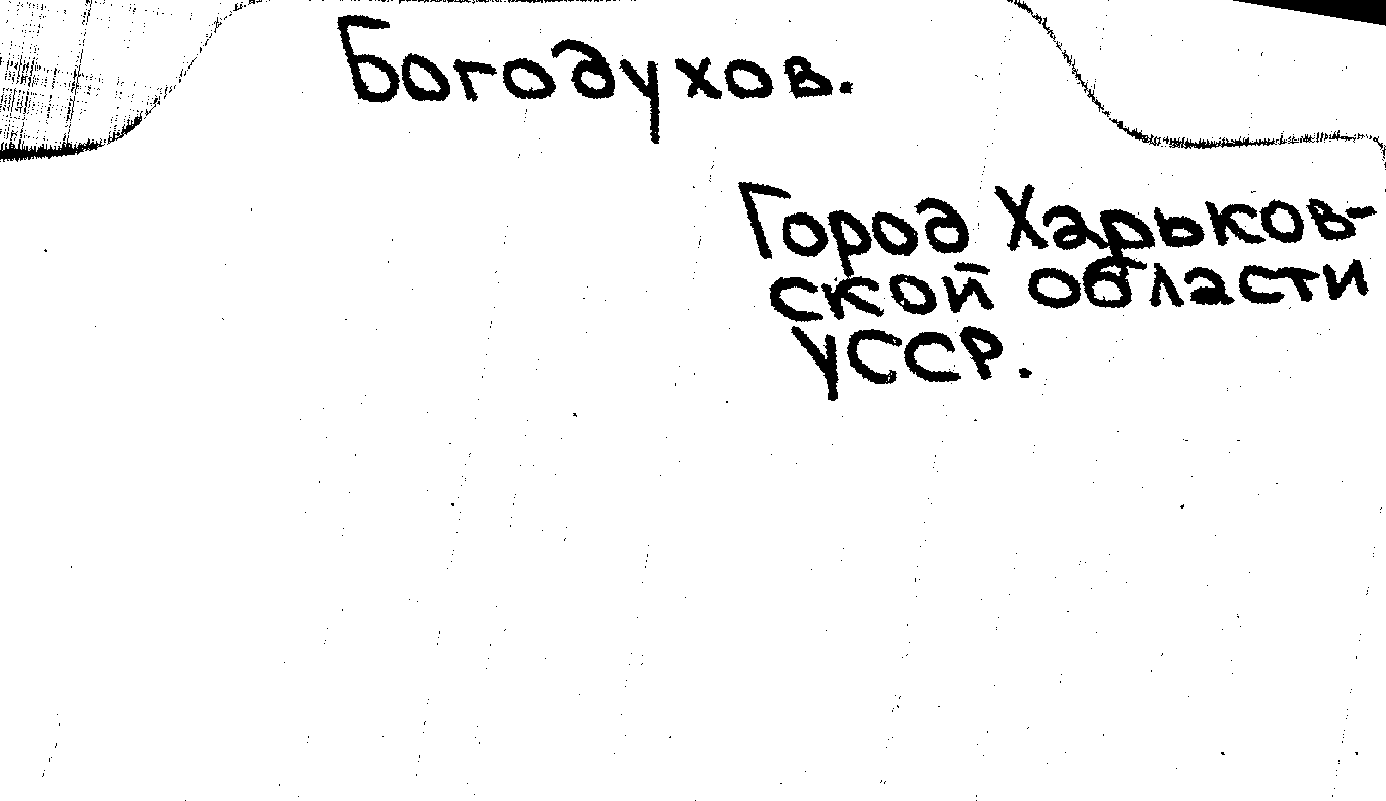 Богодухов.
Город Харьков-
ской области
УССР.